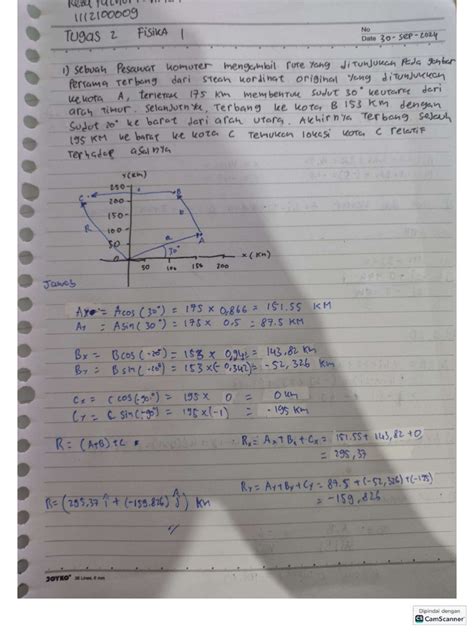 1112100009
Tugas 2 Fisika 1
No
Date 30-SEP-2024
1) Sebuah Pesawat komuter mengambil rute yang ditunjukan Pada gambar
Pertama Terbang dari kordinat original yang ditunjukan
kekota A, terletak 175 KM membentuk Sudut 30° keutara dari
arah Timur. Selanjutnya, Terbang ke kota B 153 KM dengan
Sudut 20° ke barat dari arah utara. Akhirnya Terbang sejauh
195 KM ke barat ke kota C Temukan lokasi kota C relatif
Terhadap asalnya
Y(KM)
250
200
150
100
50
C
B
b
R
a
A
30°
0
50 100 150 200
X (KM)
Jawab
Ax = A cos (30°) = 175 x 0,866 = 151.55 KM
Ay = A sin (30°) = 175 x 0.5 = 87.5 KM
Bx = B cos (-20°) = 153 x 0,94 = 143,82 KM
By = B sin (-20°) = 153 x (-0,342) = -52,326 KM
Cx = C cos (-90°) = 195 x 0 = 0 KM
Cy = C sin (-90°) = 195 x (-1) = -195 KM
R = (A+B)+C
Rx = Ax + Bx + Cx = 151.55 + 143,82 + 0
= 295,37
Ry = Ay + By + Cy = 87.5 + (-52,326) + (-195)
= -159,826
R = (295,37 î + (-159.826) ĵ) KM
JOYKO
36 Lines, 8 mm
Dipindai dengan
CS CamScanner